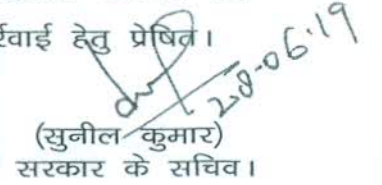 र्रवाई हेतु प्रेषित।
28-06-19
(सुनील कुमार)
सरकार के सचिव।